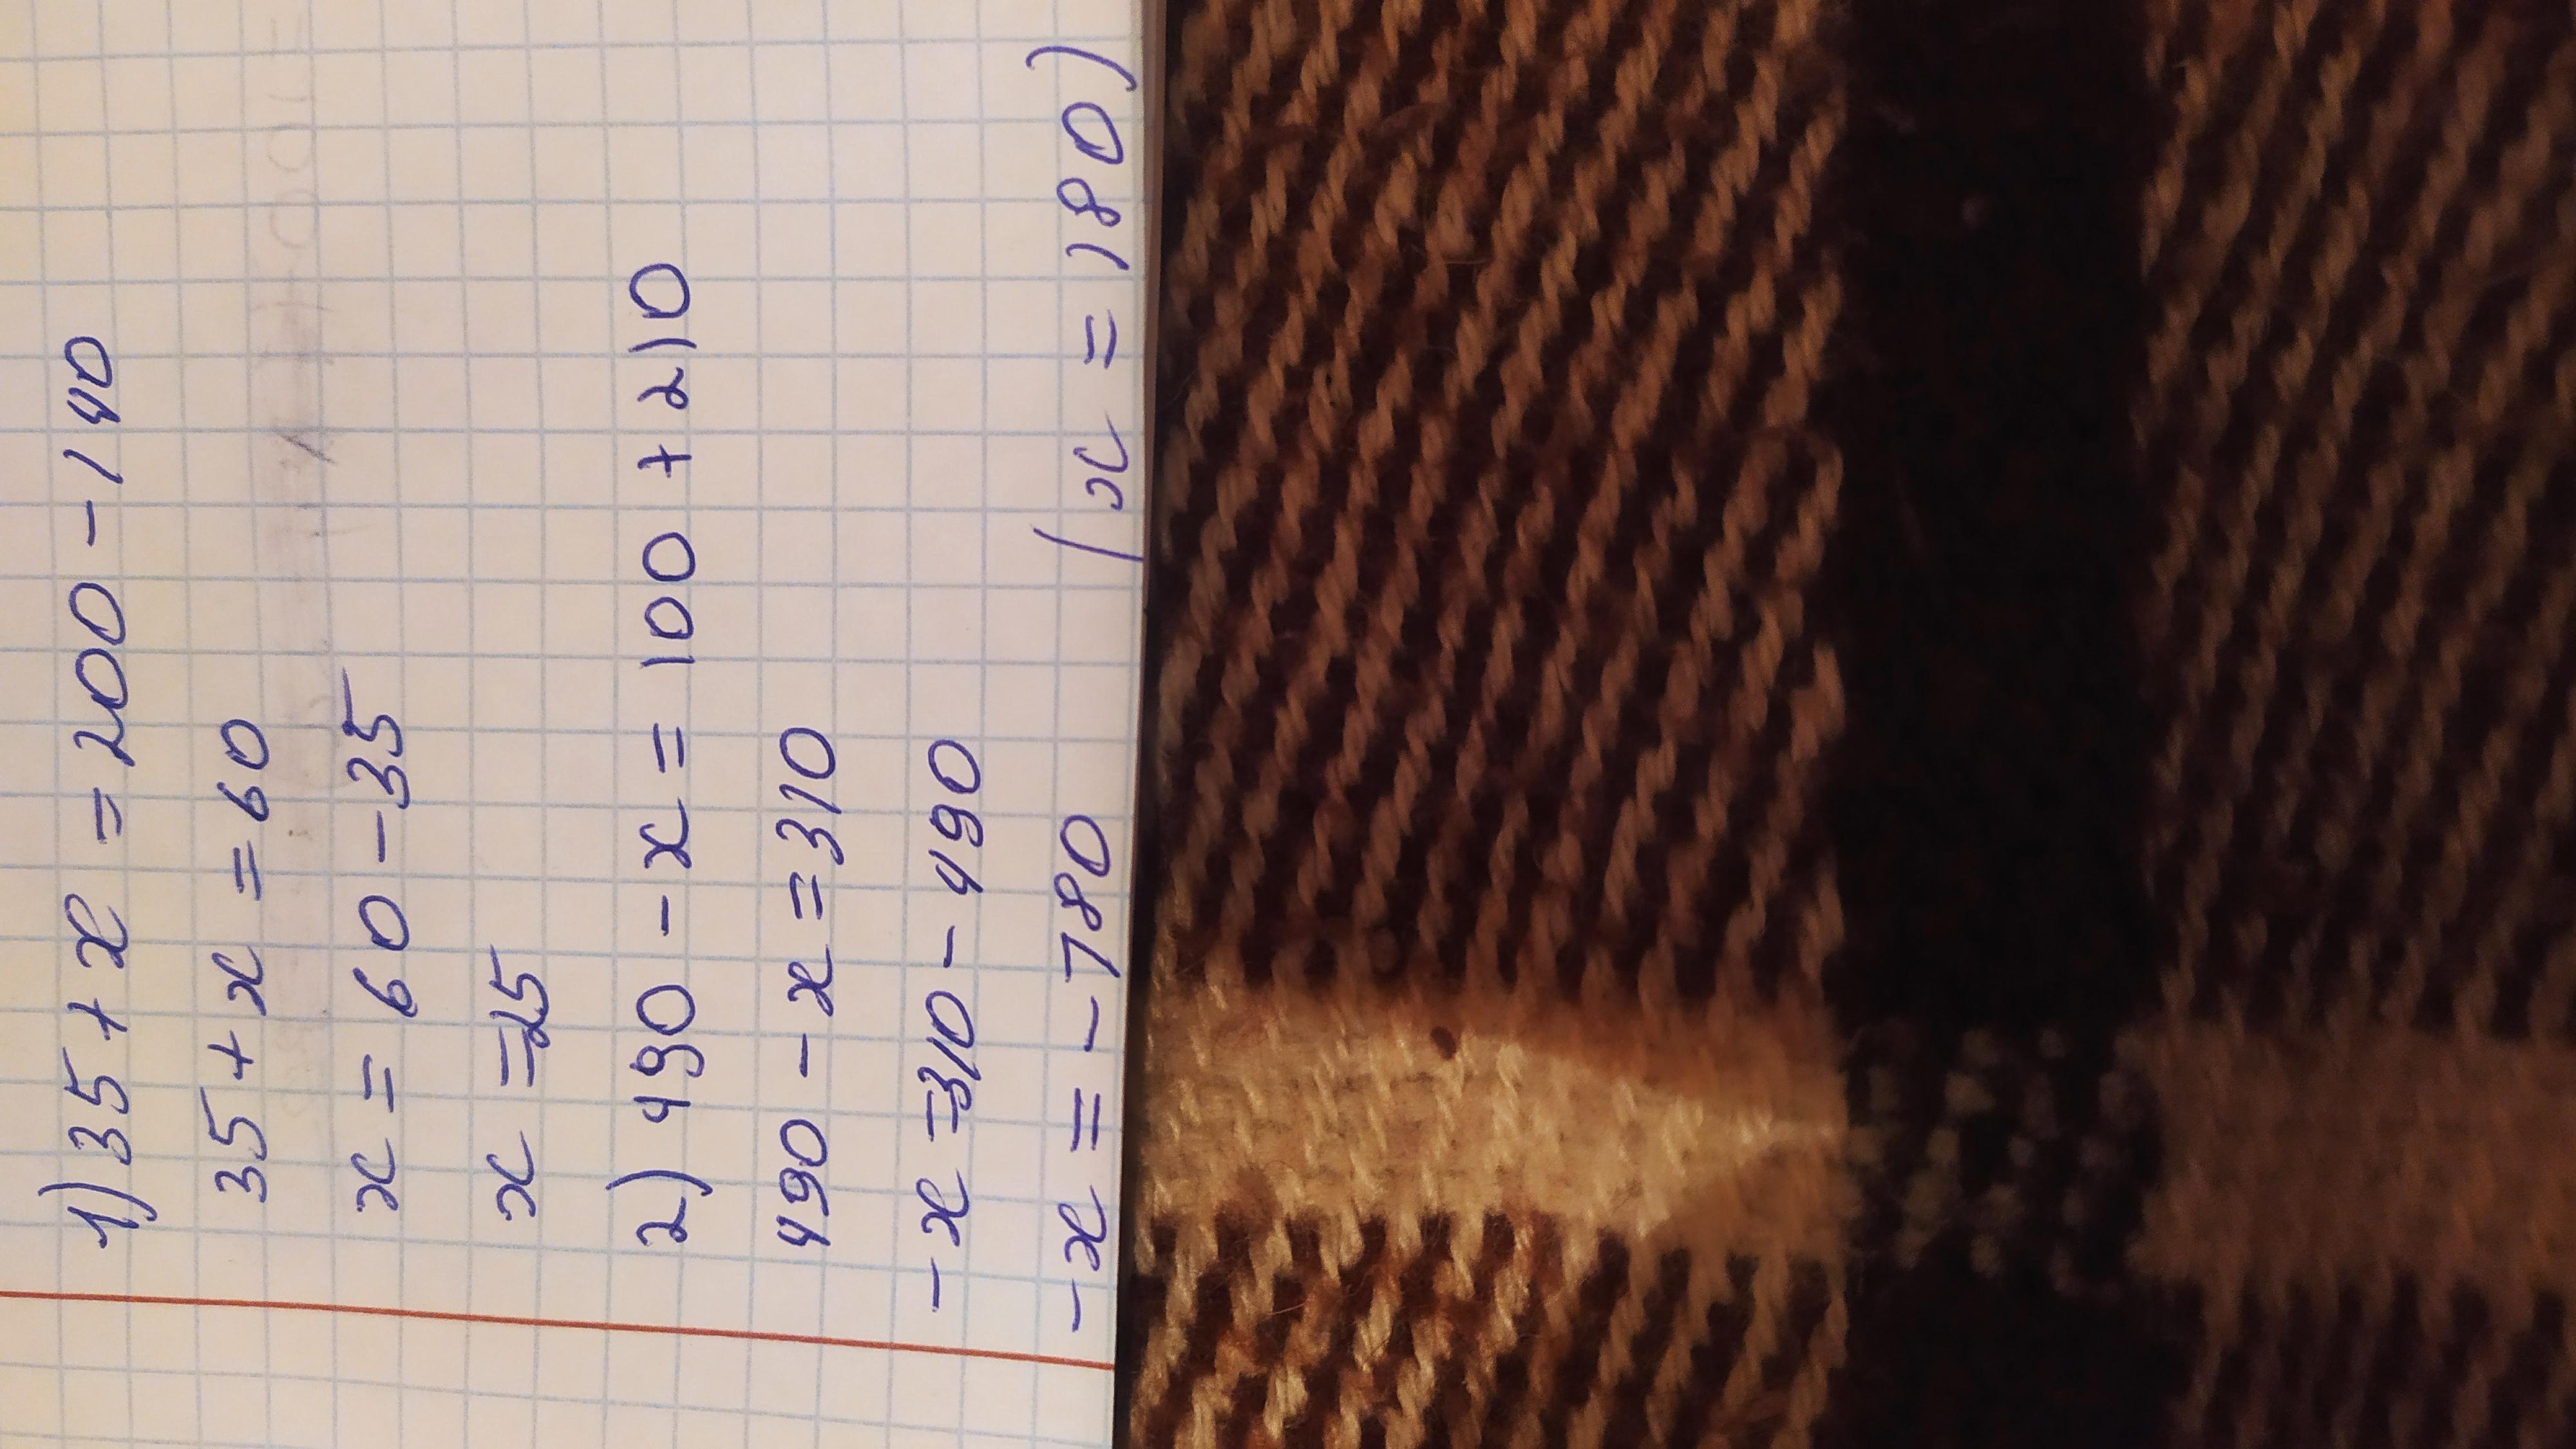 1) 35 + x = 200 - 140
35 + x = 60
x = 60 - 35
x = 25
2) 490 - x = 100 + 210
490 - x = 310
- x = 310 - 490
- x = - 780 (x = 180)